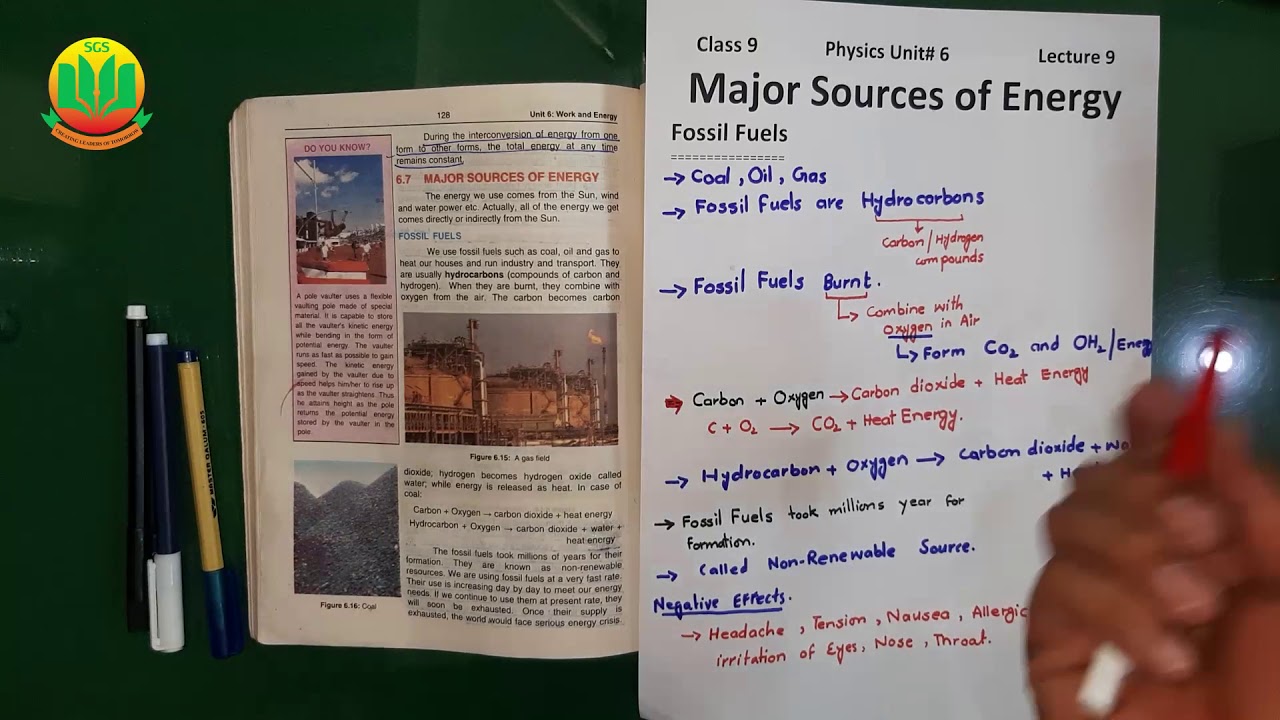 SGS
CREATING LEADERS OF TOMORROW
128 Unit 6: Work and Energy
DO YOU KNOW?
A pole vaulter uses a flexible
vaulting pole made of special
material. It is capable to store
all the vaulter's kinetic energy
while bending in the form of
potential energy. The vaulter
runs as fast as possible to gain
speed. The kinetic energy
gained by the vaulter due to
speed helps him/her to rise up
as the vaulter straightens. Thus
he attains height as the pole
returns the potential energy
stored by the vaulter in the
pole.
During the interconversion of energy from one
form to other forms, the total energy at any time
remains constant.
6.7 MAJOR SOURCES OF ENERGY
The energy we use comes from the Sun, wind
and water power etc. Actually, all of the energy we get
comes directly or indirectly from the Sun.
FOSSIL FUELS
We use fossil fuels such as coal, oil and gas to
heat our houses and run industry and transport. They
are usually hydrocarbons (compounds of carbon and
hydrogen). When they are burnt, they combine with
oxygen from the air. The carbon becomes carbon
Figure 6.15: A gas field
dioxide; hydrogen becomes hydrogen oxide called
water; while energy is released as heat. In case of
coal:
Carbon + Oxygen → carbon dioxide + heat energy
Hydrocarbon + Oxygen → carbon dioxide + water +
heat energy
The fossil fuels took millions of years for their
formation. They are known as non-renewable
resources. We are using fossil fuels at a very fast rate.
Their use is increasing day by day to meet our energy
needs. If we continue to use them at present rate, they
will soon be exhausted. Once their supply is
exhausted, the world would face serious energy crisis.
Figure 6.16: Coal
MASTER DALUM-605
Class 9 Physics Unit# 6 Lecture 9
Major Sources of Energy
Fossil Fuels
================
→ Coal, Oil, Gas
→ Fossil Fuels are Hydrocarbons
Carbon/Hydrogen
compounds
→ Fossil Fuels Burnt.
Combine with
oxygen in Air
Form CO₂ and OH₂/Energy
Carbon + Oxygen → Carbon dioxide + Heat Energy
C + O₂ → CO₂ + Heat Energy.
→ Hydrocarbon + Oxygen → Carbon dioxide +
+
→ Fossil Fuels took millions year for
formation.
→ Called Non-Renewable Source.
Negative Effects.
→ Headache, Tension, Nausea, Allergic
irritation of Eyes, Nose, Throat.